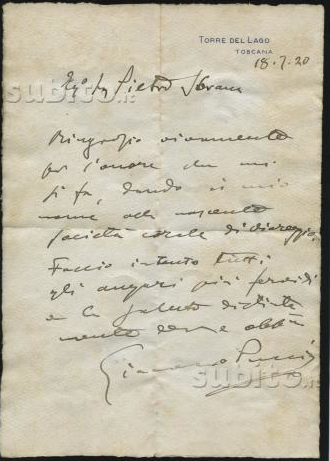 TORRE DEL LAGO
TOSCANA
18.7.20
Pietro
Ringrazio vivamente
per l'onore che mi
si fa, dando il mio
nome alla nascente
società corale di Viareggio.
Faccio intanto tutti
gli auguri più fervidi
e la saluto distinta
mente
Giacomo Puccini
subito.it
subito.it